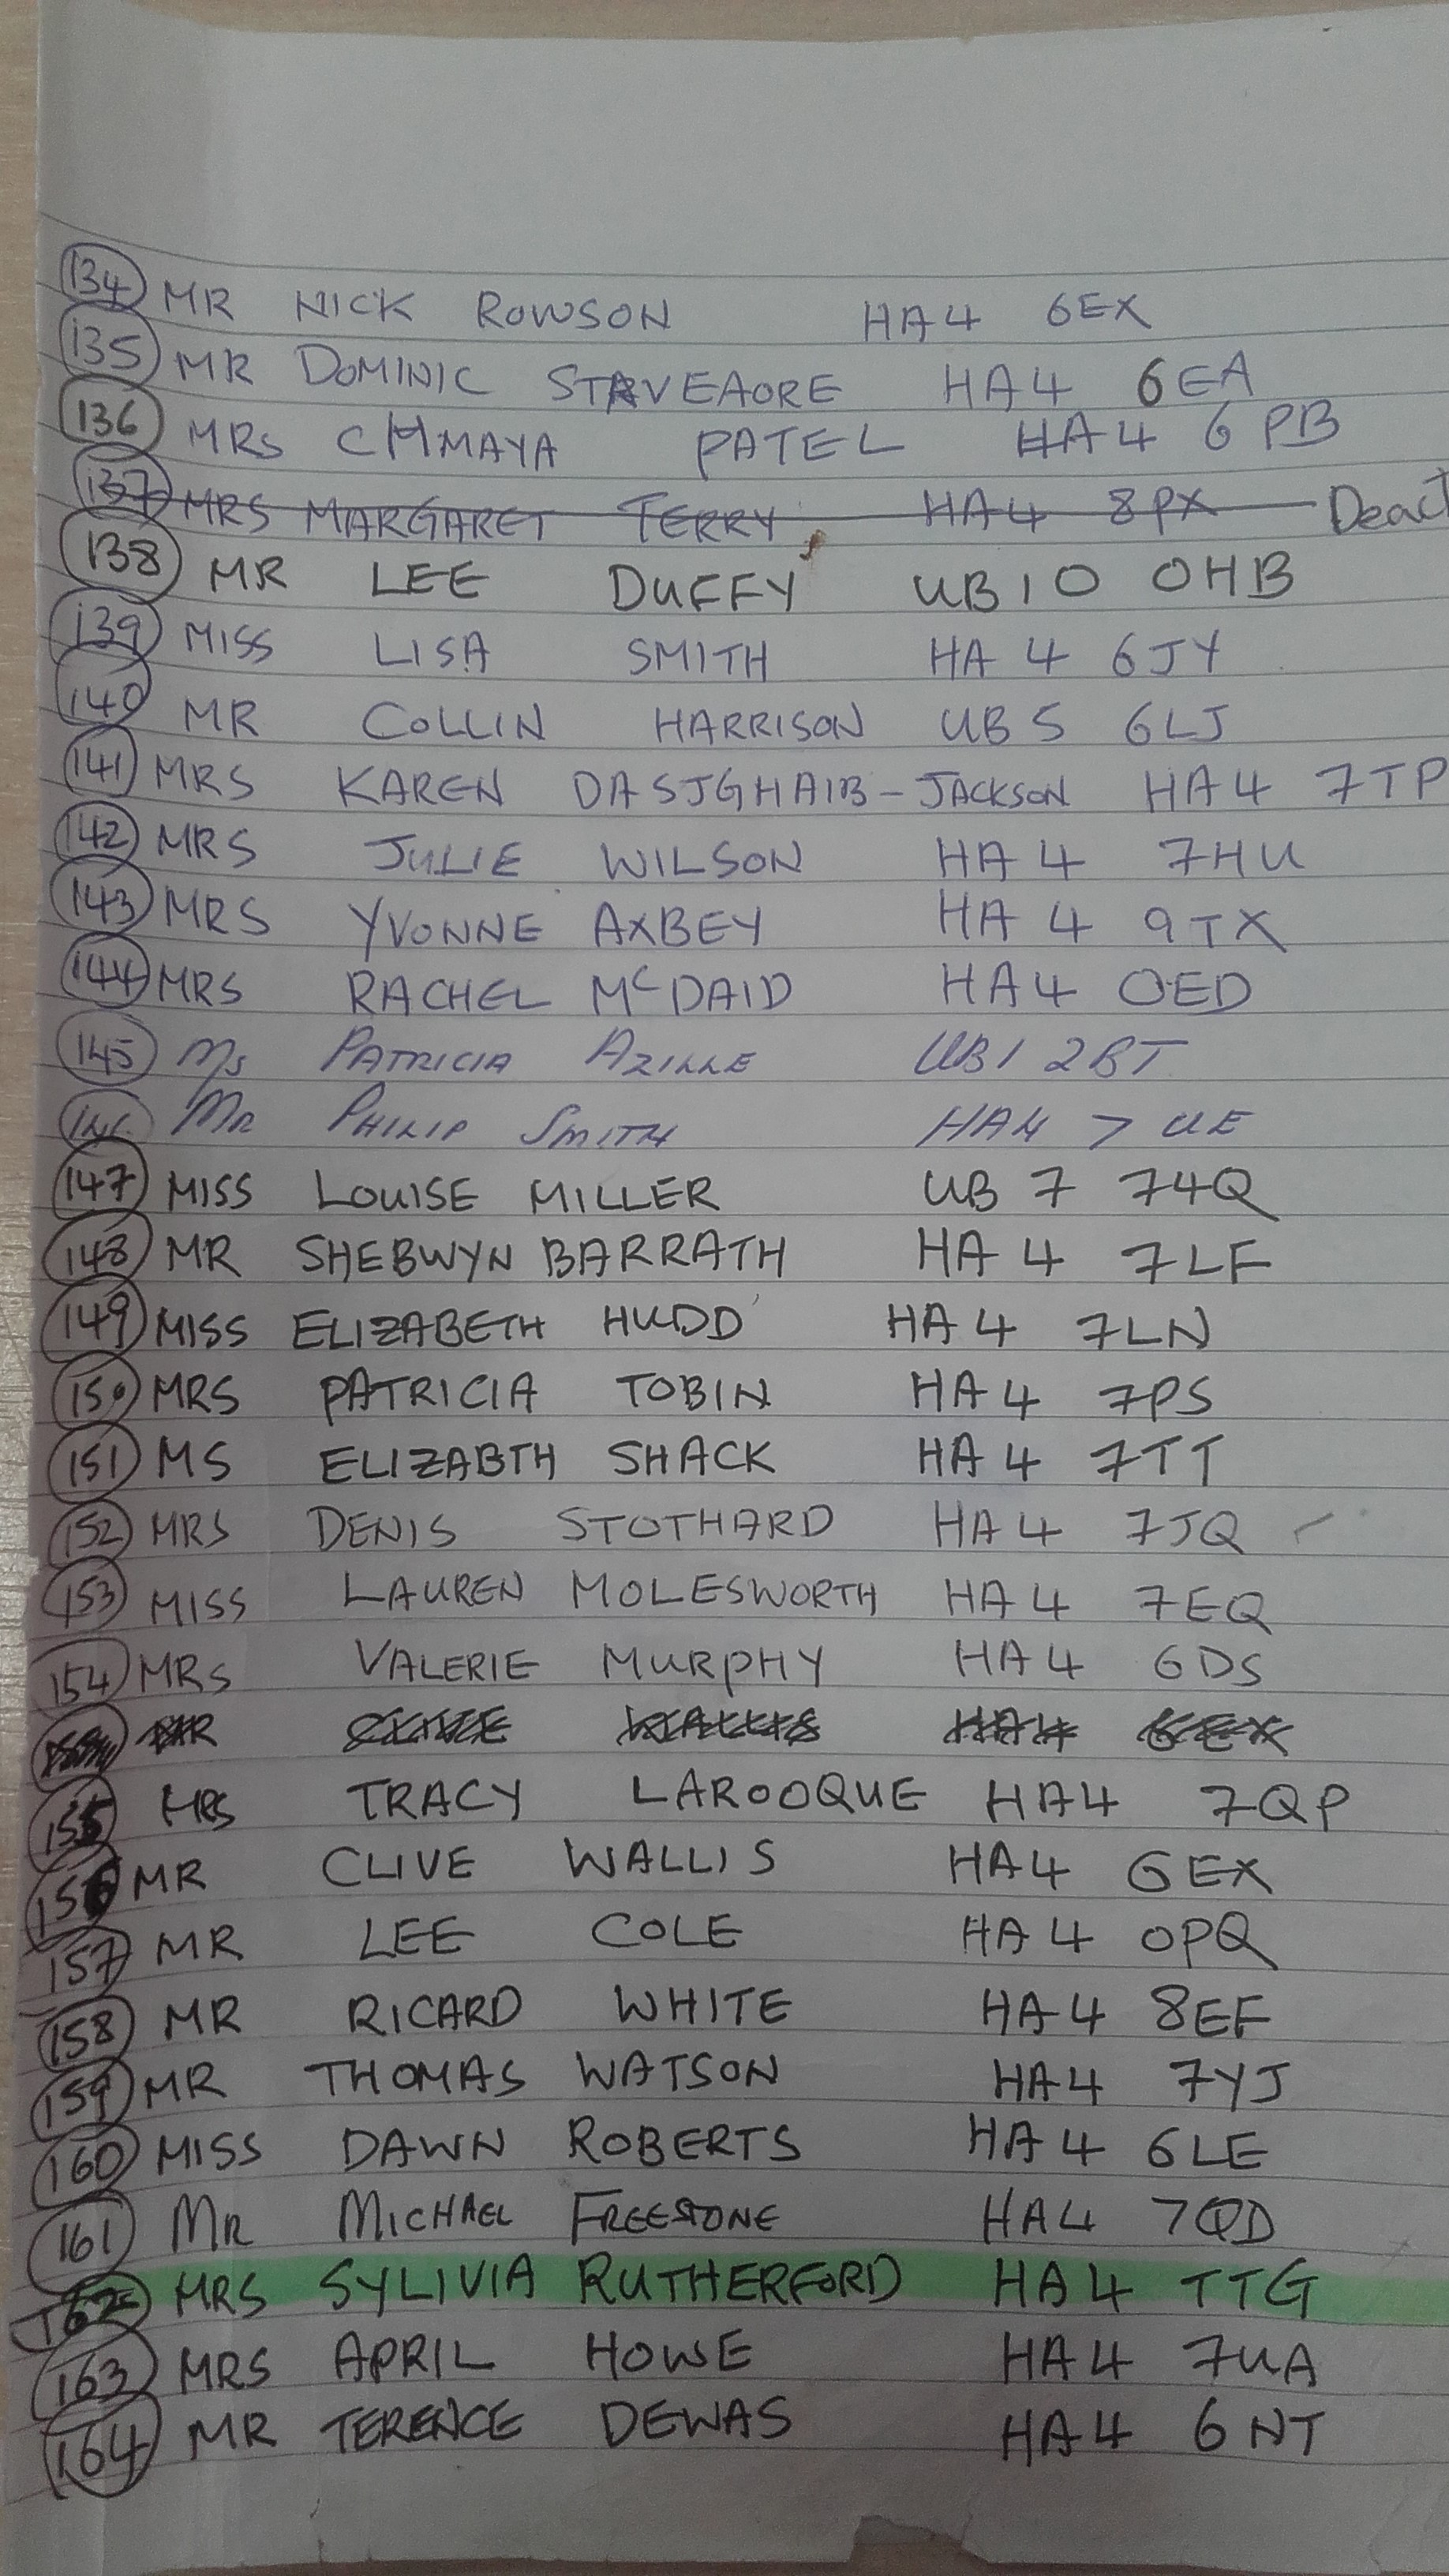 134 MR NICK ROWSON HA4 6EX
135 MR DOMINIC STAVEAORE HA4 6EA
136 MRS CHMAYA PATEL HA4 6PB
137 MRS MARGARET TERRY HA4 8PX Deact
138 MR LEE DUFFY UB10 0HB
139 MISS LISA SMITH HA4 6JY
140 MR COLLIN HARRISON UB5 6LJ
141 MRS KAREN DASJGHAIB-JACKSON HA4 7TP
142 MRS JULIE WILSON HA4 7HU
143 MRS YVONNE AXBEY HA4 9TX
144 MRS RACHEL McDAID HA4 0ED
145 Ms PATRICIA AZILLE UB1 2BT
MR PHILIP SMITH HA4 7UE
147 MISS LOUISE MILLER UB7 74Q
148 MR SHEBWYN BARRATH HA4 7LF
149 MISS ELIZABETH HUDD HA4 7LN
150 MRS PATRICIA TOBIN HA4 7PS
151 MS ELIZABTH SHACK HA4 7TT
152 MRS DENIS STOTHARD HA4 7JQ
153 MISS LAUREN MOLESWORTH HA4 7EQ
154 MRS VALERIE MURPHY HA4 6DS
MR CLIVE WALLIS HA4 6EX
155 MRS TRACY LAROOQUE HA4 7QP
156 MR CLIVE WALLIS HA4 6EX
157 MR LEE COLE HA4 0PQ
158 MR RICARD WHITE HA4 8EF
159 MR THOMAS WATSON HA4 7YJ
160 MISS DAWN ROBERTS HA4 6LE
161 MR MICHAEL FREESTONE HA4 7QD
162 MRS SYLIVIA RUTHERFORD HA4 TTG
163 MRS APRIL HOWE HA4 7UA
164 MR TERENCE DEWAS HA4 6NT